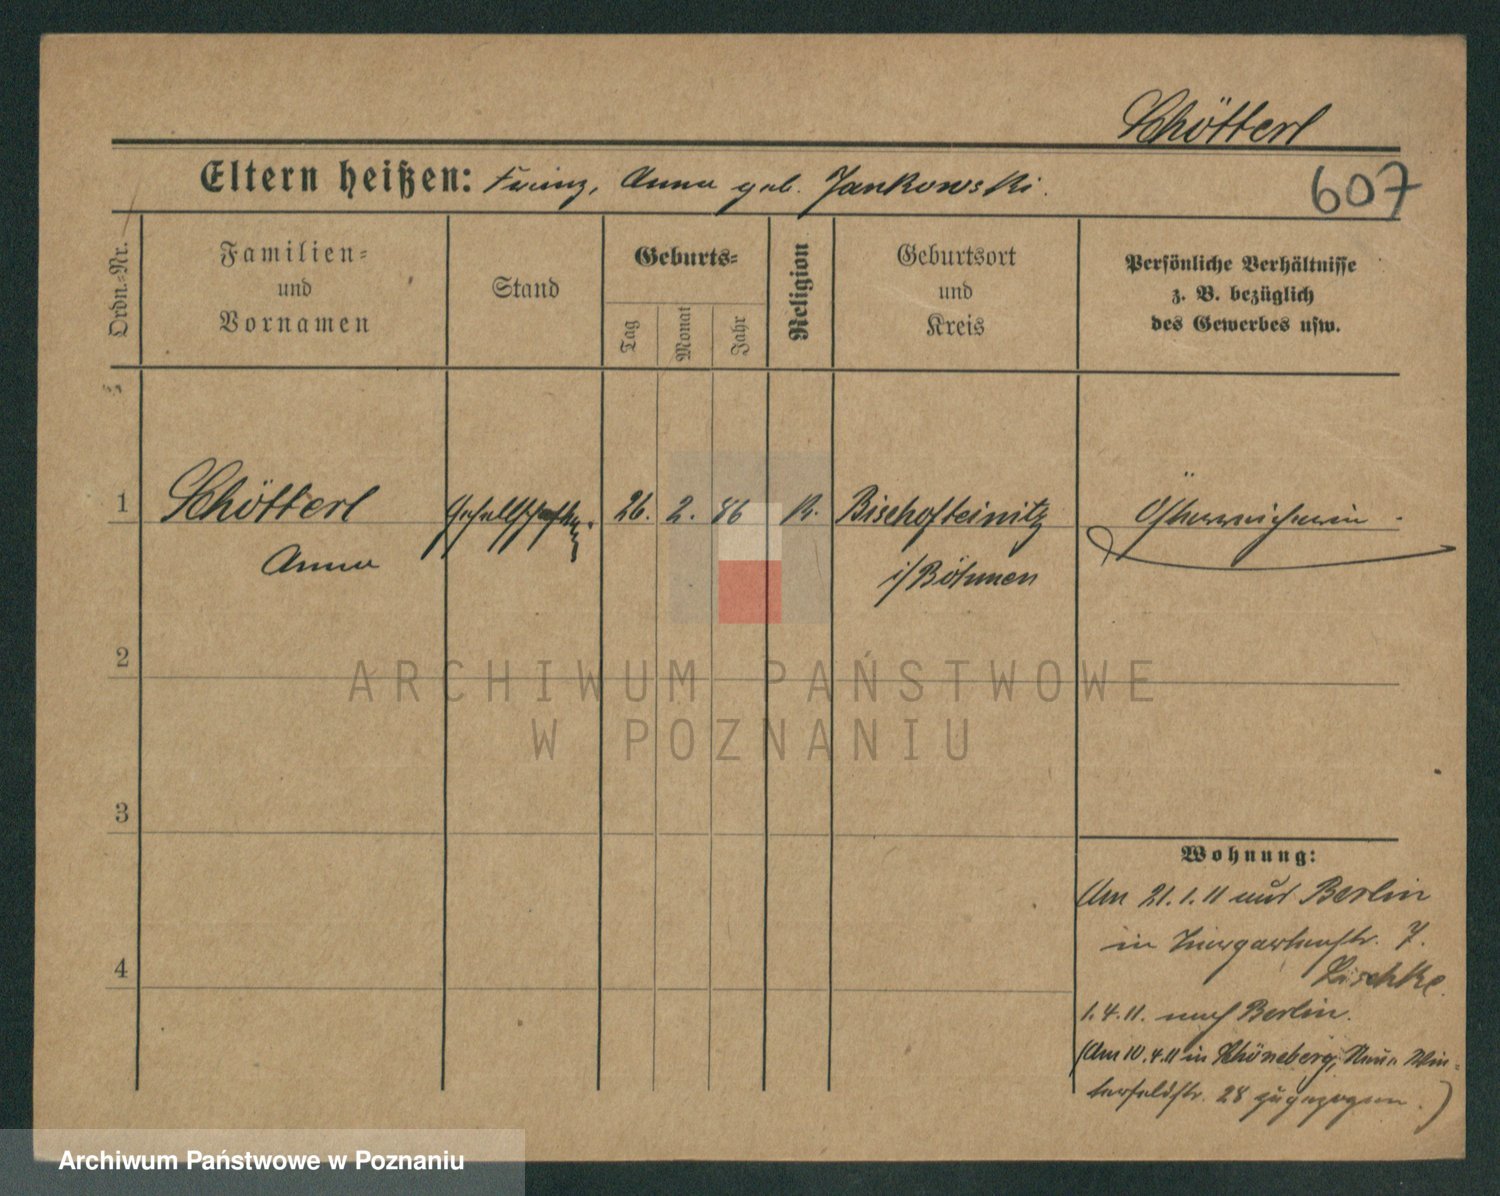 Schötterl
Eltern heißen: Franz, Anna geb. Jankowski.
607
Ordn.-Nr.
Familien-
und
Vornamen
Stand
Geburts-
Tag
Monat
Jahr
Religion
Geburtsort
und
Kreis
Persönliche Verhältnisse
z. B. bezüglich
des Gewerbes usw.
1
Schötterl
Anna
26. 2. 86
K.
Bischofteinitz
i/Böhmen
Österreicherin
2
ARCHIWUM PAŃSTWOWE
W POZNANIU
3
4
Wohnung:
Am 21.1.11 aus Berlin
in Tiergartenstr. 7.
1.4.11. nach Berlin.
(Am 10.4.11 in Schöneberg, Neue Win-
terfeldstr. 28 zugezogen.)
Archiwum Państwowe w Poznaniu